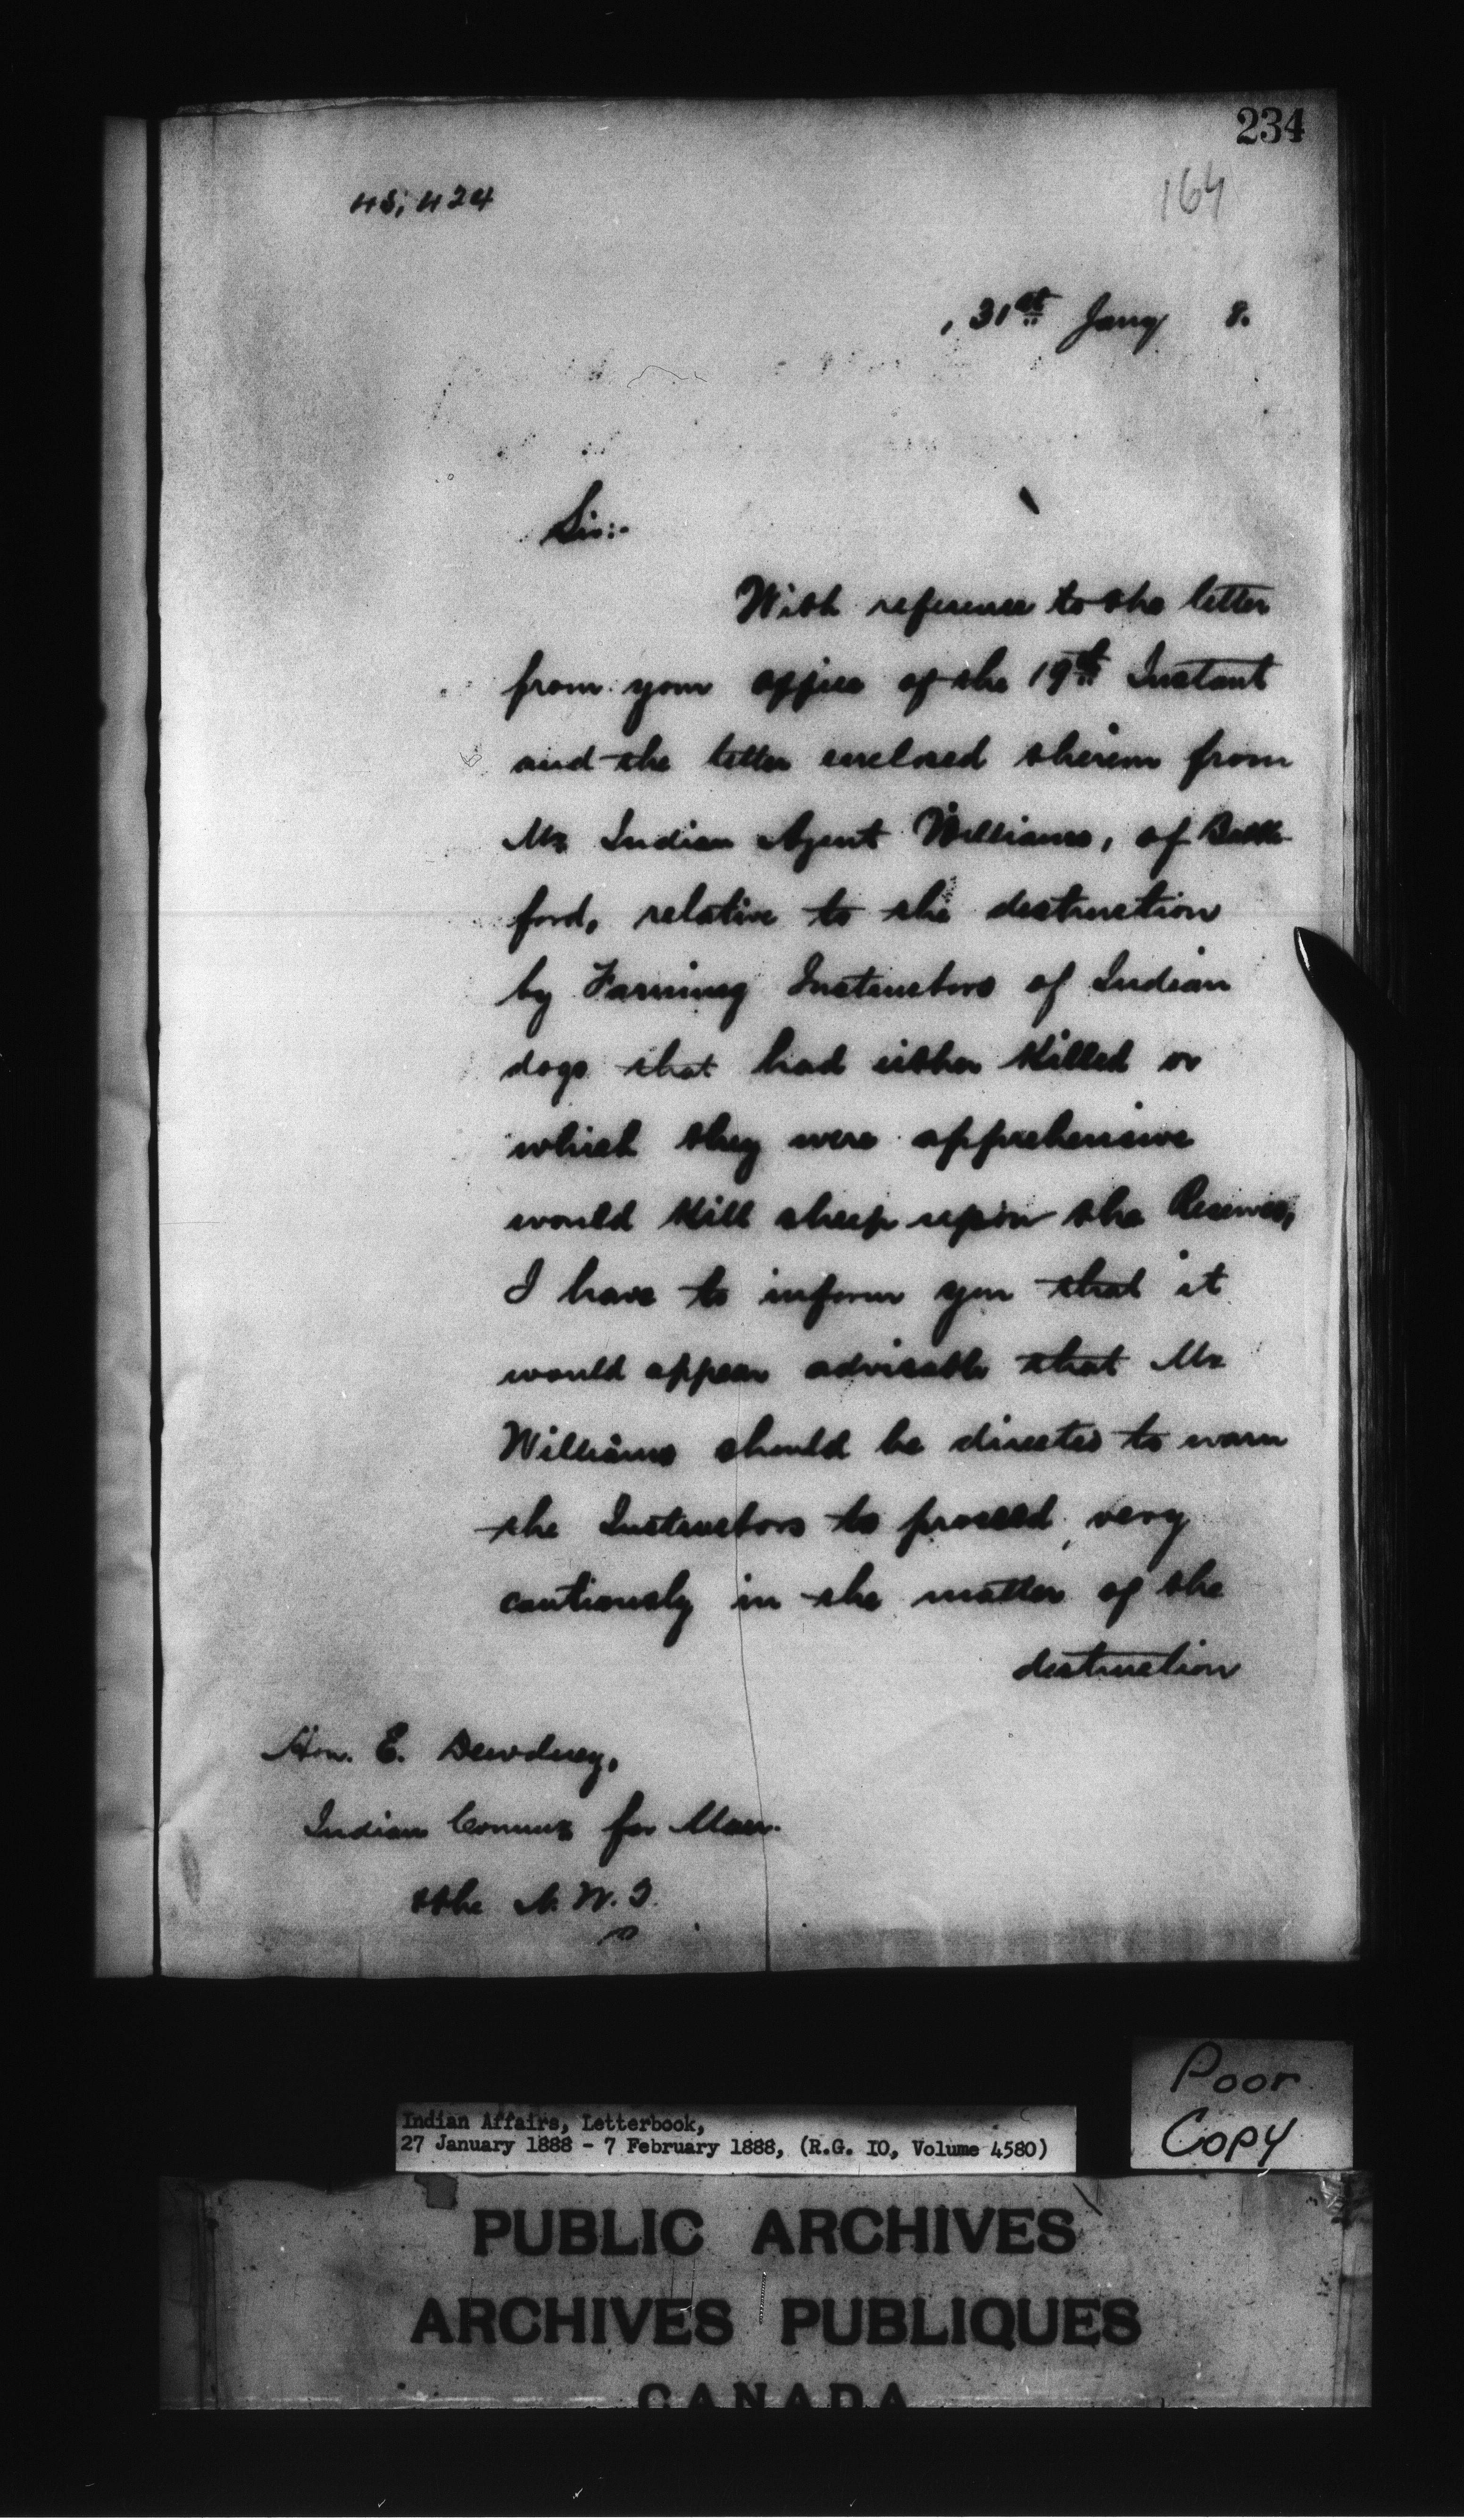 234
164
45,424
, 31st Jany 8.
Sir:-
With reference to the letter
from your office of the 19th Instant
and the letter enclosed therein from
Mr Indian Agent Williams, of Battle-
ford, relative to the destruction
by Farming Instructors of Indian
dogs that had either killed or
which they were apprehensive
would kill sheep upon the Reserves,
I have to inform you that it
would appear advisable that Mr
Williams should be directed to warn
the Instructors to proceed very
cautiously in the matter of the
destruction
Hon. E. Dewdney,
Indian Commr for Man.
& the N. W. T.
Poor
Copy
Indian Affairs, Letterbook,
27 January 1888 - 7 February 1888, (R.G. IO, Volume 4580)
PUBLIC ARCHIVES
ARCHIVES PUBLIQUES
CANADA